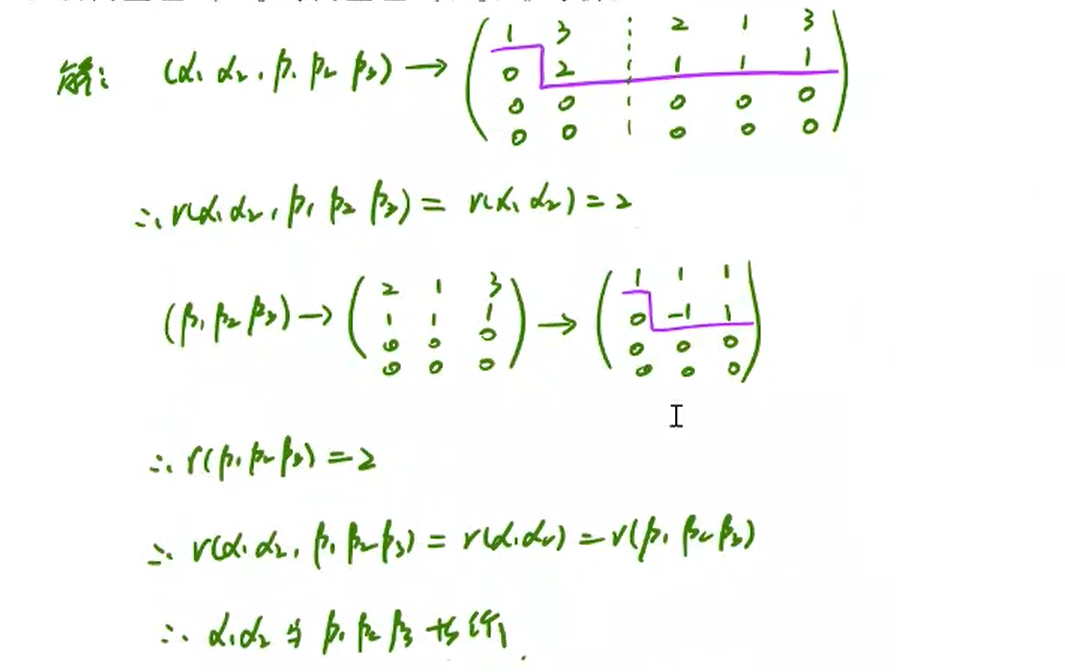 解: (α₁ α₂, β₁ β₂ β₃) →
1 3 2 1 3
0 2 1 1 1
0 0 0 0 0
0 0 0 0 0
∴ r(α₁ α₂, β₁ β₂ β₃) = r(α₁ α₂) = 2
(β₁ β₂ β₃) → →
2 1 3 1 1 1
1 1 1 0 -1 1
0 0 0 0 0 0
0 0 0 0 0 0
∴ r(β₁ β₂ β₃) = 2
∴ r(α₁ α₂, β₁ β₂ β₃) = r(α₁ α₂) = r(β₁ β₂ β₃)
∴ α₁ α₂ 与 β₁ β₂ β₃ 等价.